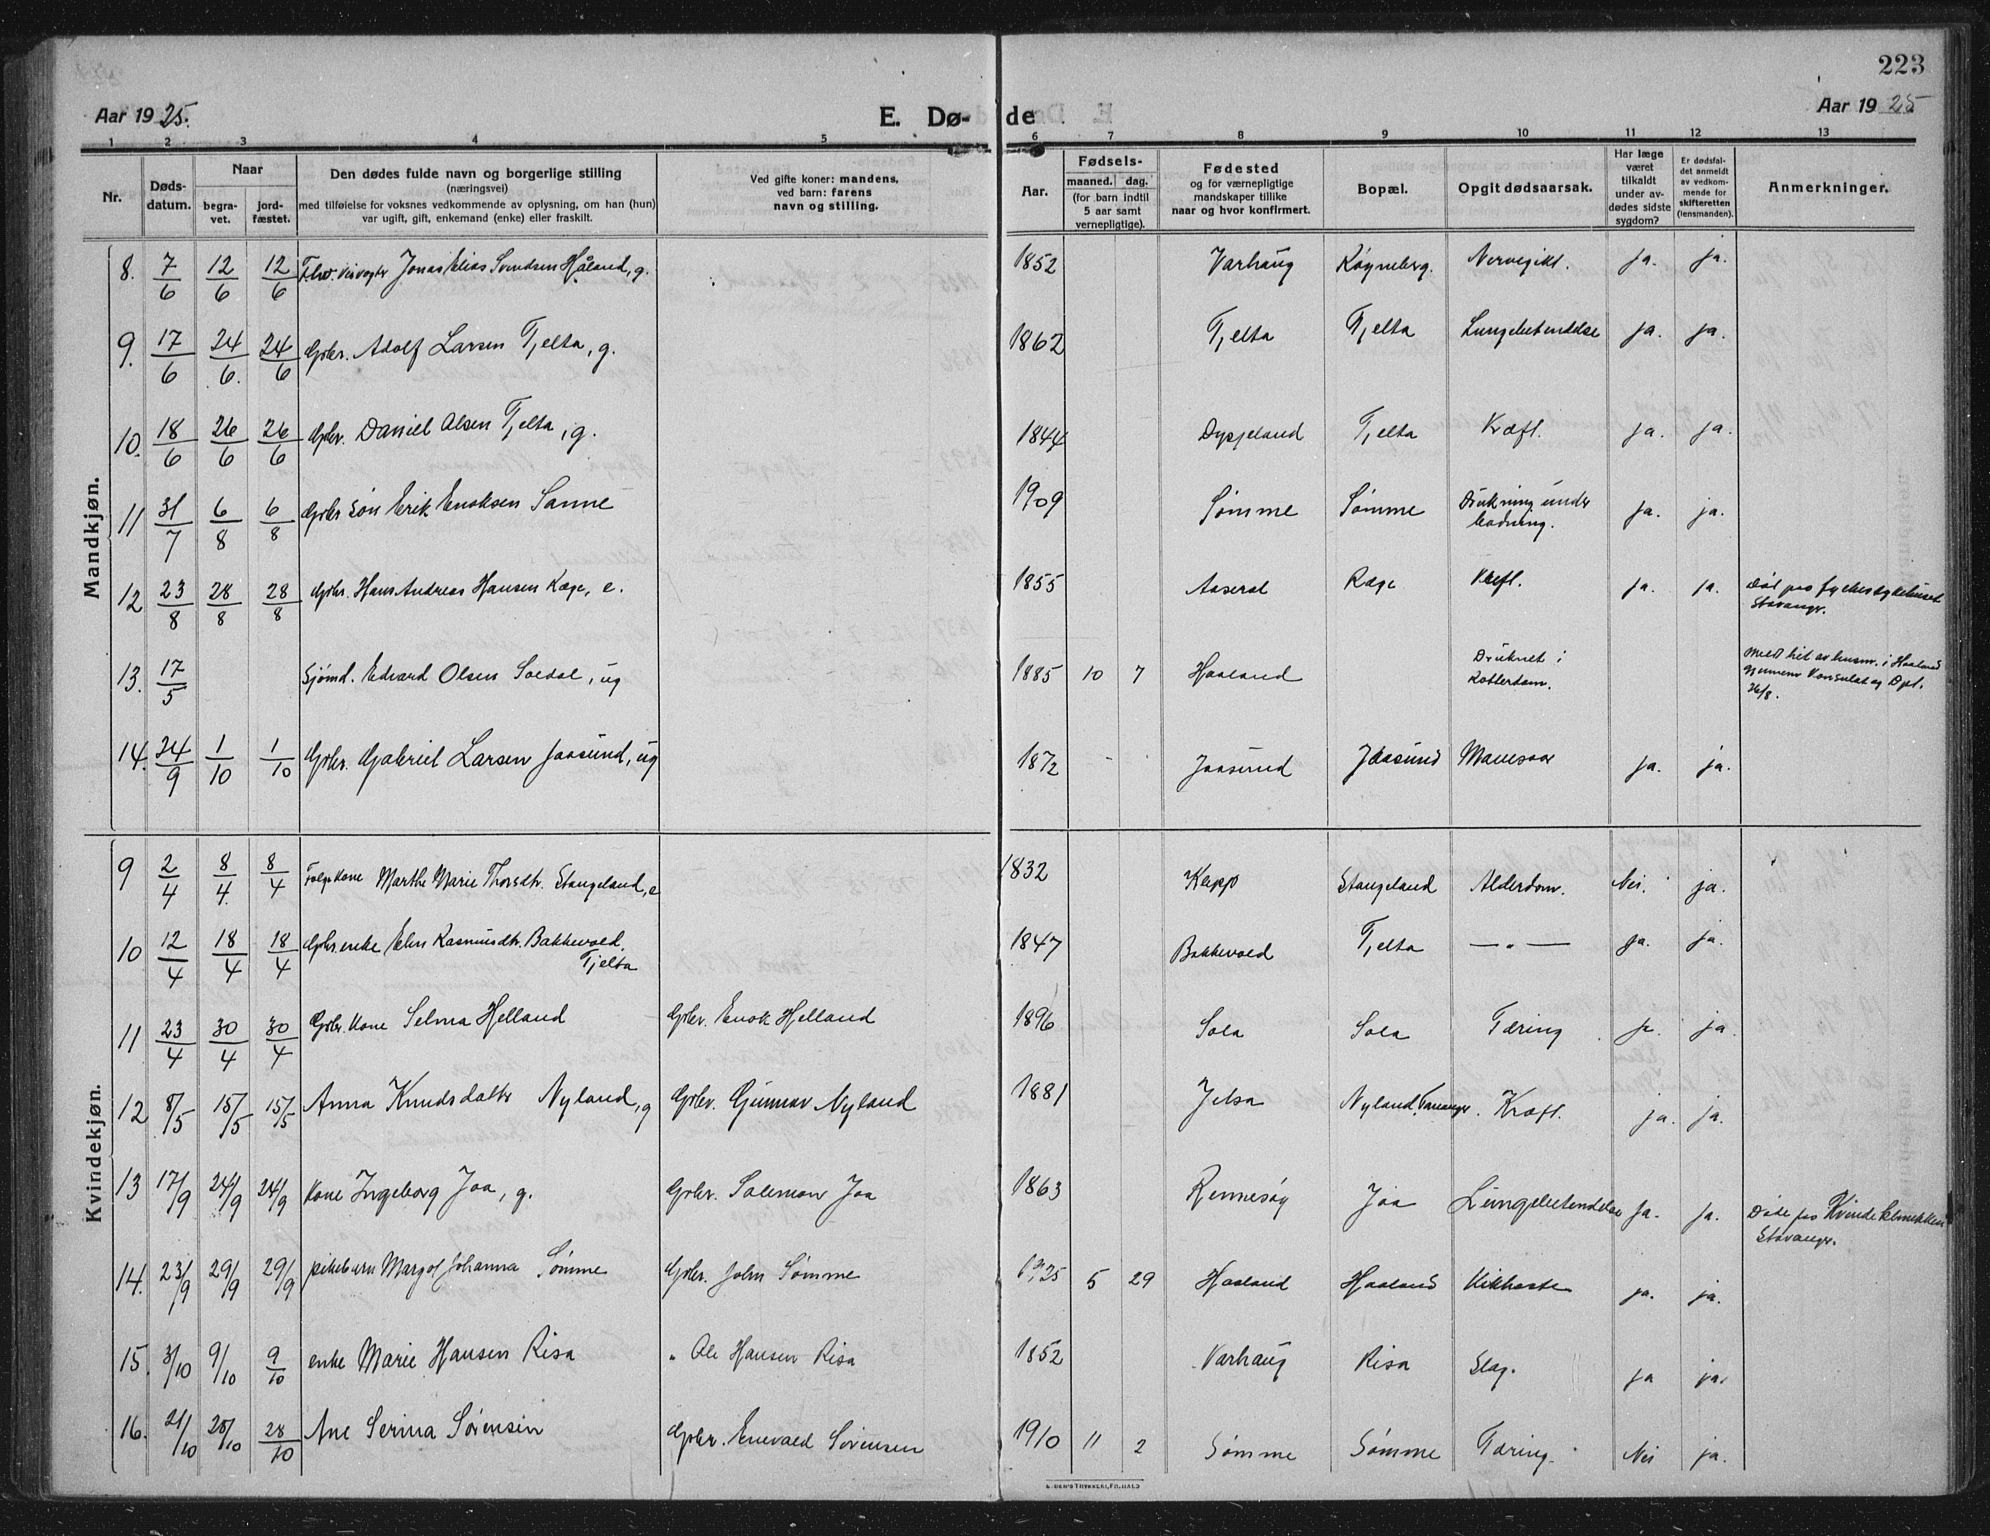 223
Aar 1925.
E. Dø- de
Aar 1925
1 2 3 4 5 6 7 8 9 10 11 12 13
Nr.
Døds-
datum.
Naar
begra-
vet.
jord-
fæstet.
Den dødes fulde navn og borgerlige stilling
(næringsvei)
med tilføielse for voksnes vedkommende av oplysning, om han (hun)
var ugift, gift, enkemand (enke) eller fraskilt.
Ved gifte koner: mandens,
ved barn: farens
navn og stilling.
Aar.
Fødsels-
maaned. dag.
(for barn indtil
5 aar samt
vernepligtige).
Fødested
og for værnepligtige
mandskaper tillike
naar og hvor konfirmert.
Bopæl.
Opgit dødsaarsak.
Har læge
været
tilkaldt
under av-
dødes sidste
sygdom?
Er dødsfal-
det anmeldt
av vedkom-
mende for
skifteretten
(lensmanden).
Anmerkninger.
Mandkjøn.
8. 7/6 12/6 12/6 Jonas Elias Svendsen Håland, g. 1852 Varhaug Køyneberg. Nervegikt. ja. ja.
9. 17/6 24/6. 24/6 Gbr. Adolf Larsen Tjelta, g. 1862 Tjelta Tjelta Lungebetendelse ja. ja.
10. 18/6 26/6 26/6 Gbr. Daniel Olsen Tjelta, g. 1844 Dysjeland Tjelta Kræft. ja. ja.
11 31/7 6/8 6/8 Gbr søn Erik Enoksen Sømme 1909 Sømme Sømme Drukning under
badning. ja. ja.
12 23/8 28/8 28/8 Gbr. Hans Andreas Hansen Ræge, e. 1855 Aaseral Ræge Kræft. ja. ja. Død paa fylkessykehuset
Stavanger.
13. 17/5 Sjømd. Edvard Olsen Soldal, ug 1885 10 7 Haaland Druknet i
Rotterdam. Meldt hit av lensm. i Haaland
gjennem Konsulat og Dpt.
26/8.
14. 24/9 1/10 1/10 Gbr. Gabriel Larsen Jaasund, ug 1872 Jaasund Jaasund Mavesaar ja. ja.
Kvindekjøn.
9 2/4 8/4. 8/4 Marthe Marie Thorsdtr. Stangeland, e 1832 Klepp Stangeland Alderdom. Nei. ja.
10 12/4 18/4 18/4 Gbr. enke Elen Rasmusdtr. Bakkevold.
Tjelta 1847 Bakkevold Tjelta — „ — ja. ja.
11 23/4 30/4 30/4 Gbr. kone Selma Helland Gbr. Enok Helland 1896 Sola Sola Tæring ja. ja.
12 8/5 15/5 15/5 Anna Knudsdatter Nyland, g Gbr. Gunnar Nyland 1881 Jelsa Nyland, Tananger. Kræft. ja. ja.
13 17/9 24/9 24/9 Kone Ingeborg Joa, g. Gbr. Salemon Joa 1863 Rennesøy Joa Lungebetendelse ja. ja. Døde paa Kvindeklinikken
Stavanger.
14. 23/9 29/9 29/9 pikebarn Margot Johanna Sømme Gbr. John Sømme 1925 5 29 Haaland Haaland Kikhoste ja. ja.
15. 3/10 9/10 9/10 enke Marie Hansen Risa „ Ole Hansen Risa 1852 Varhaug Risa Slag. ja ja.
16. 21/10 28/10 28/10 Ane Serina Sørensen Gbr. Enevald Sørensen 1910 11 2 Sømme Sømme Tæring. Nei ja.